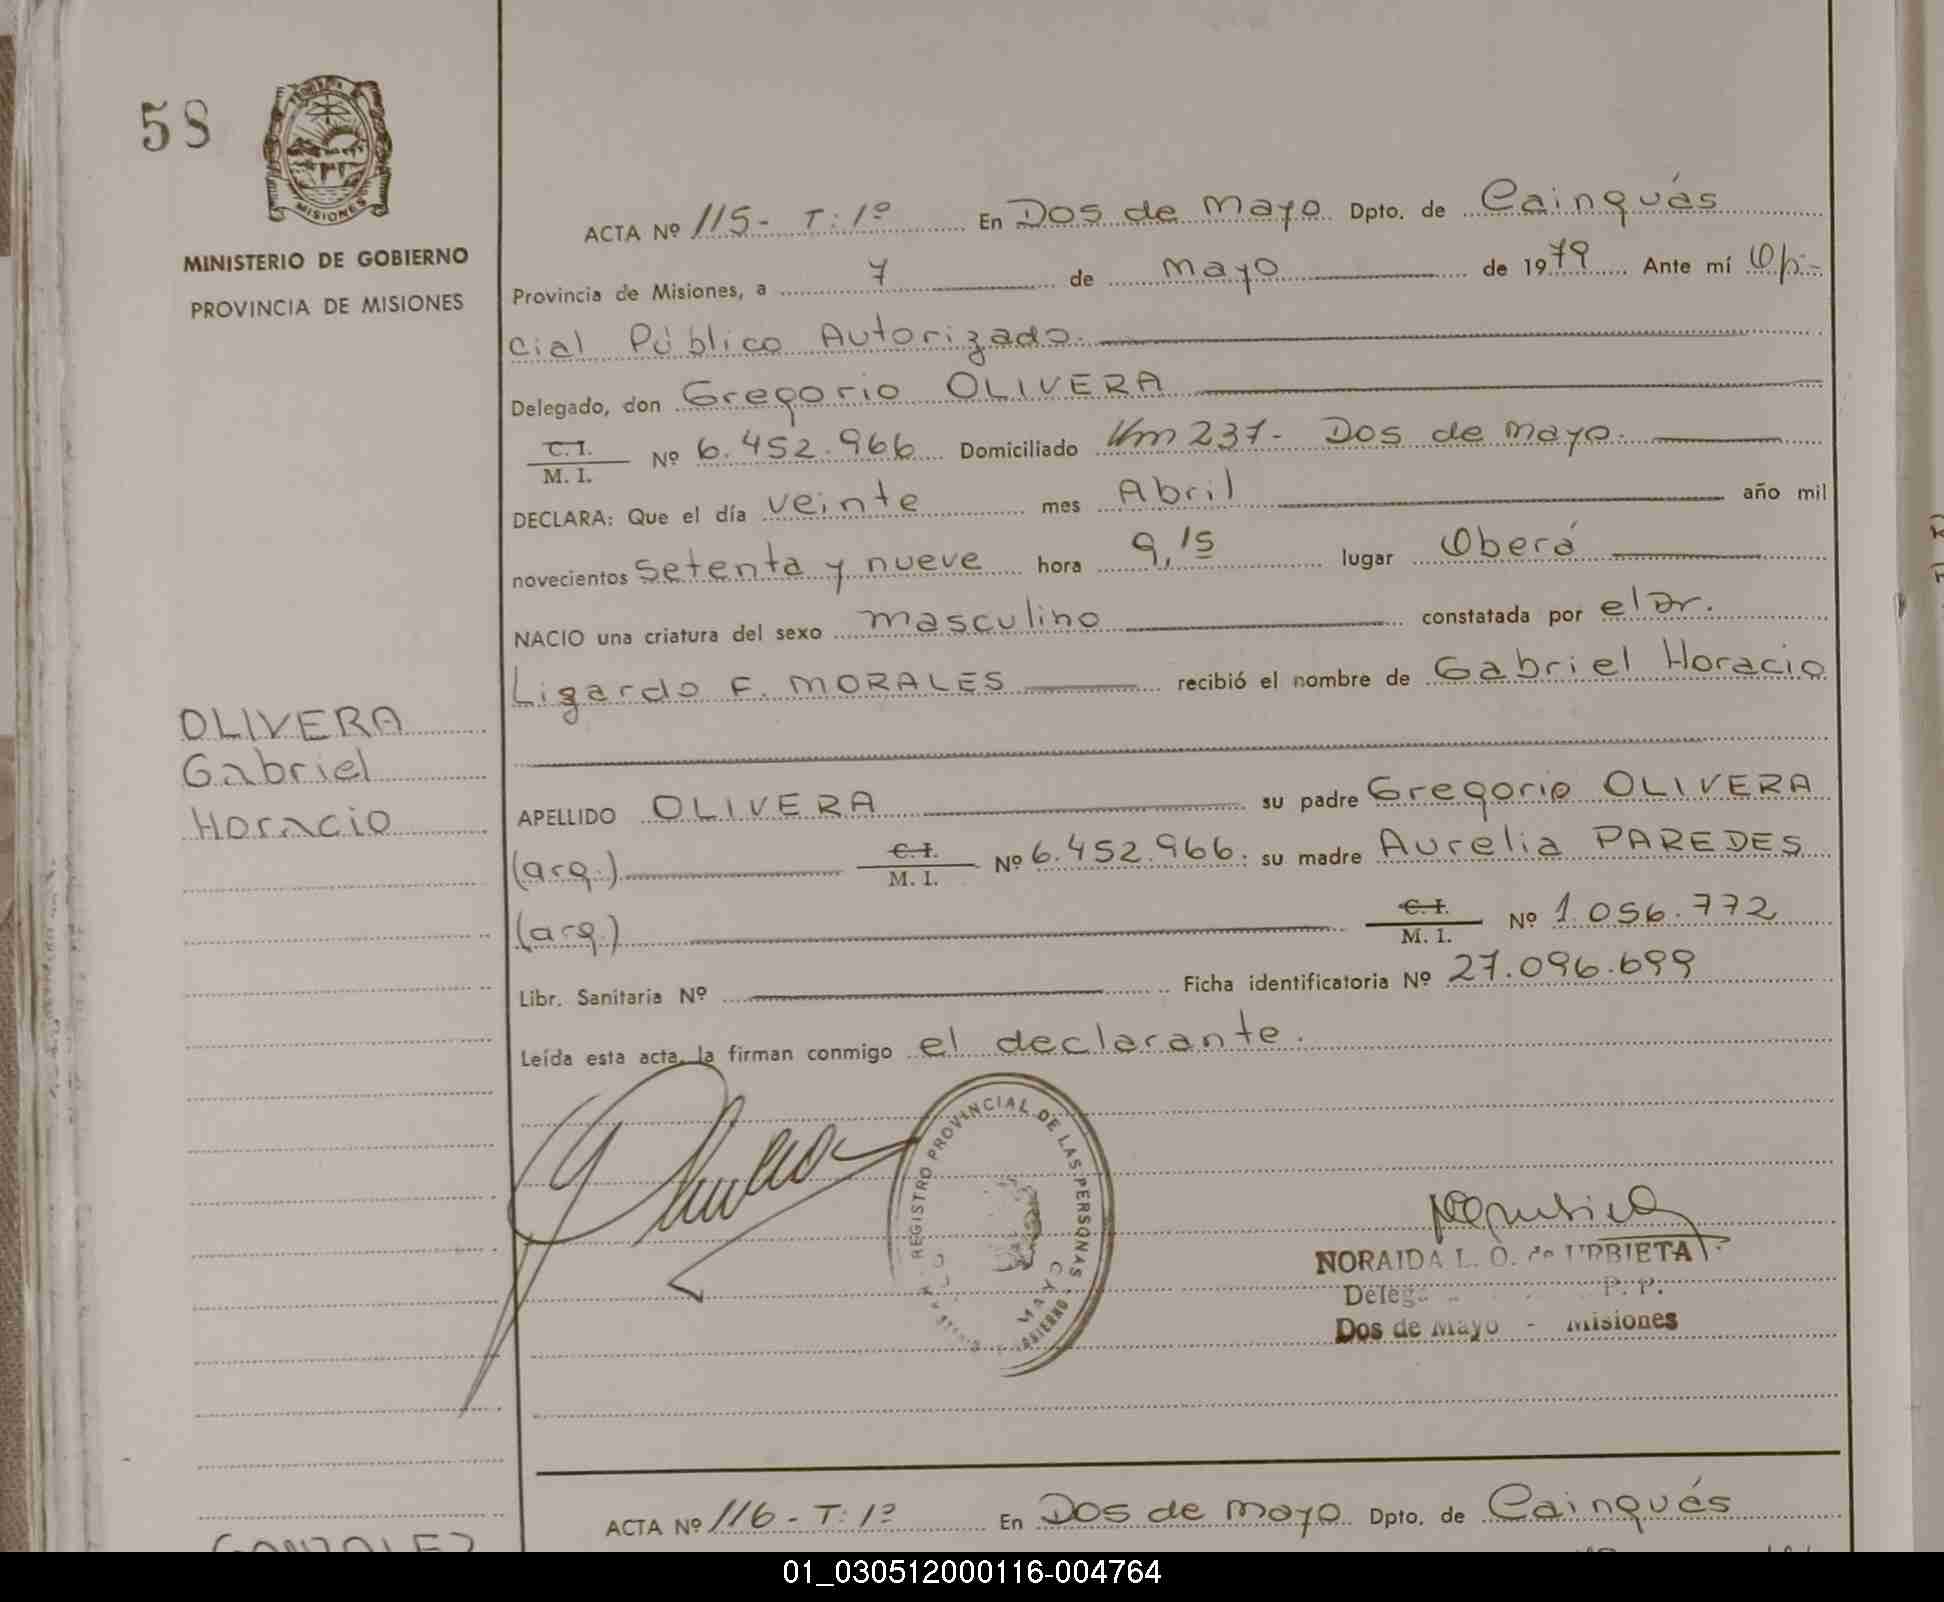 58
MISIONES
MINISTERIO DE GOBIERNO
PROVINCIA DE MISIONES
ACTA Nº 115- T: 1º En Dos de Mayo Dpto. de Cainguás
Provincia de Misiones, a 7 de Mayo de 1979 Ante mí Ofi-
cial Público Autorizado.
Delegado, don Gregorio OLIVERA
C. I.
M. I. Nº 6.452.966 Domiciliado Km 237- Dos de Mayo.
DECLARA: Que el día veinte mes Abril año mil
novecientos setenta y nueve hora 9,15 lugar Oberá
NACIO una criatura del sexo masculino constatada por el Dr.
Ligardo F. MORALES recibió el nombre de Gabriel Horacio
OLIVERA
Gabriel
Horacio
APELLIDO OLIVERA su padre Gregorio OLIVERA
(arg.) C. I.
M. I. Nº 6.452.966. su madre Aurelia PAREDES
(arg.) C. I.
M. I. Nº 1.056.772
Libr. Sanitaria Nº Ficha identificatoria Nº 27.096.699
Leída esta acta, la firman conmigo el declarante.
REGISTRO PROVINCIAL DE LAS PERSONAS
MAYO
NORAIDA L. O. de URBIETA
P. P.
Dos de Mayo - Misiones
ACTA Nº 116 - T: 1º En Dos de Mayo Dpto. de Cainguás
GONZALEZ
01_030512000116-004764